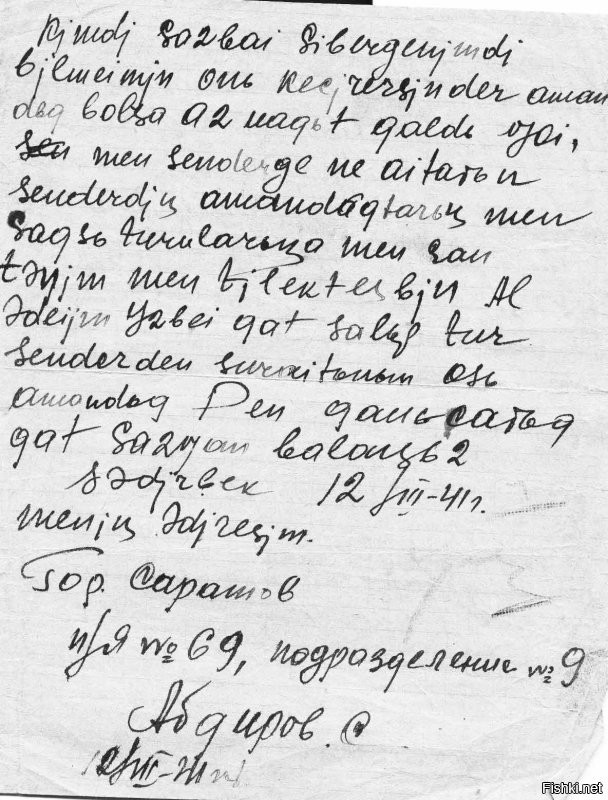 kimdi sazbai sibergenimdi
bjlmeimin onь kecjrersinder aman
dьq bolsa az uaqьt qaldь ƣoi,
men senderge ne aitaтьn
senderdiꞑ amandaqtarьꞑ men
saqsь turularьꞑa men ꞩan
tənim men tjlekteꞩbjn Al
ədeijm yzbei qat salьp tur
senderden suraitьnьm osь
amandьq Den qaпьсатьq
qat Sazƣan balaꞑьz
sədjrbek 12/III-41п.
menjꞑ ədjresjm.
Гор. Саратов
п/я №69, подразделение №9
Абдиров. С
12/III-41
Fishki.net